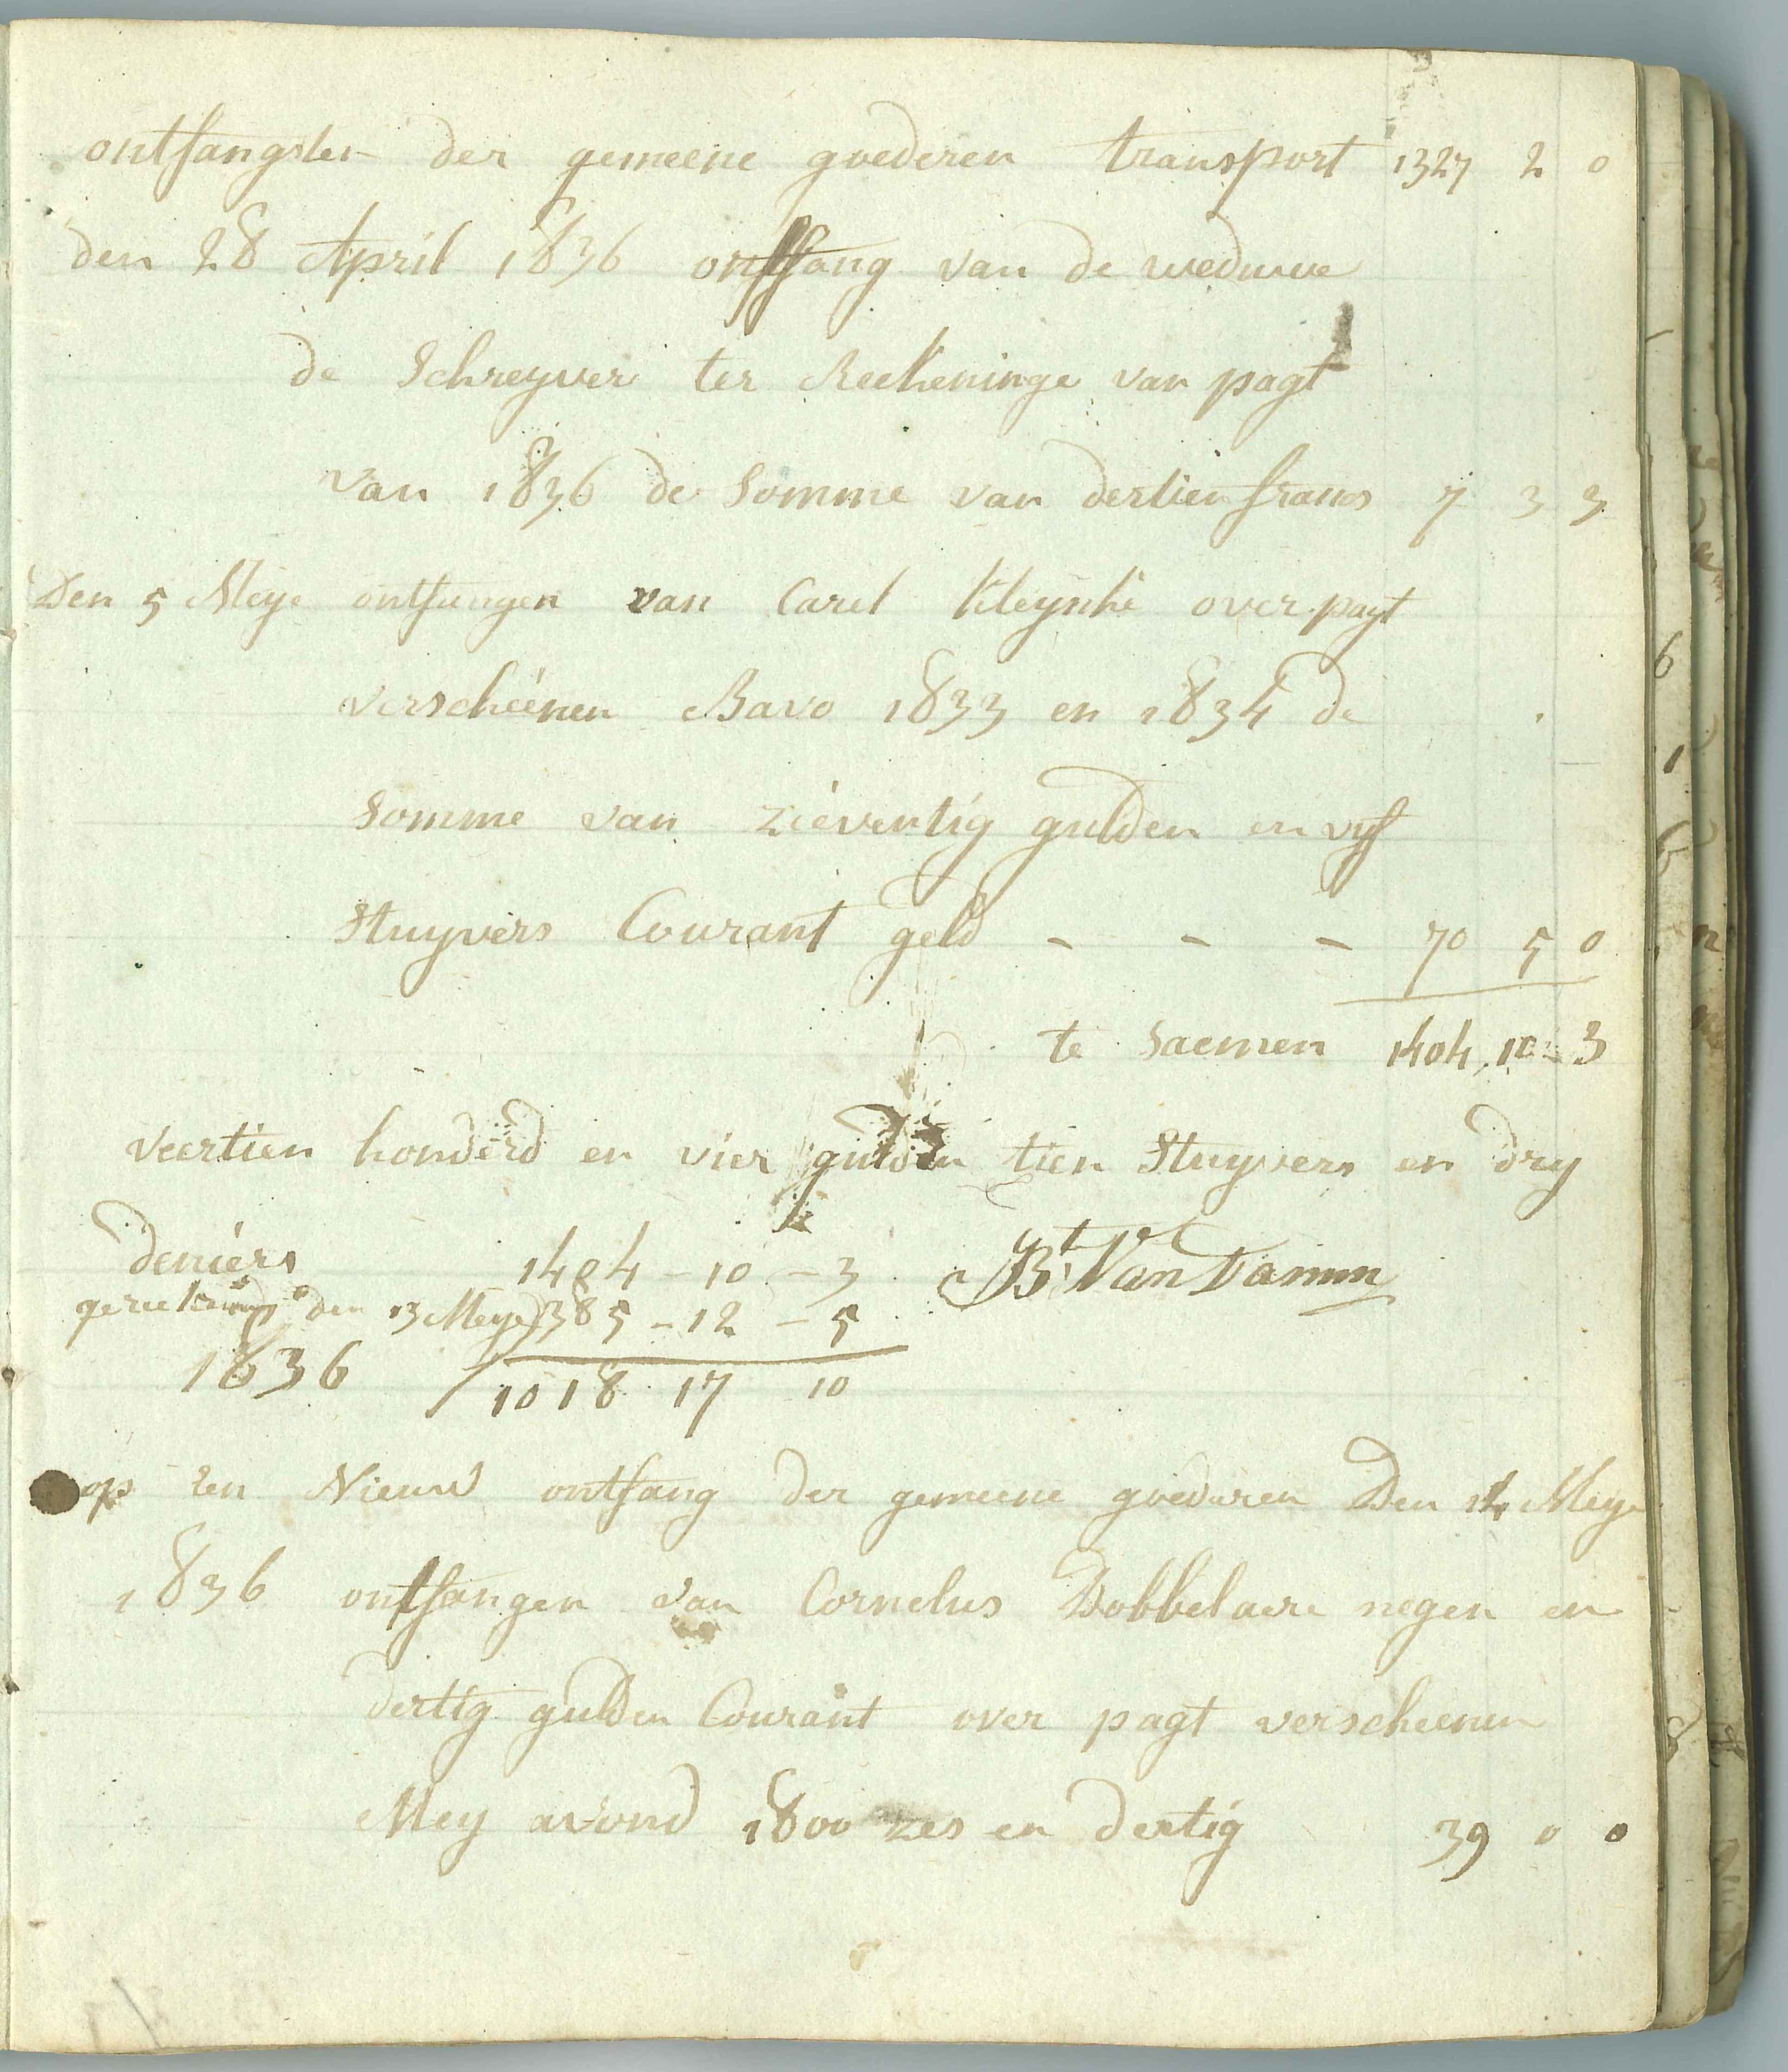 ontfangsten der gemeene goederen transport 1327 2 0
den 28 April 1836 ontfang van de weduwe
de Schreyver ter Reekeninge van pagt
van 1836 de Somme van dertien francs 7 3 3
Den 5 Meye ontfangen van Carel Kleynhe over pagt
verscheenen Bavo 1833 en 1834 de
Somme van zieventig gulden en vyf
Stuyvers Courant geld - - - 70 5 0
te saemen 1404, 10 - 3
veertien honderd en vier gulden tien Stuyvers en dry
deniers 1404 - 10 - 3 Bt Van Damm
den 13 Meye 385 - 12 - 5
1836 1018 17 10
op een Nieuw ontfang der gemeene goederen Den 14 Meye
1836 ontfangen van Cornelus Dobbelaere negen en
dertig gulden Courant over pagt verscheenen
Mey avond 1800 zes en dertig 39 0 0